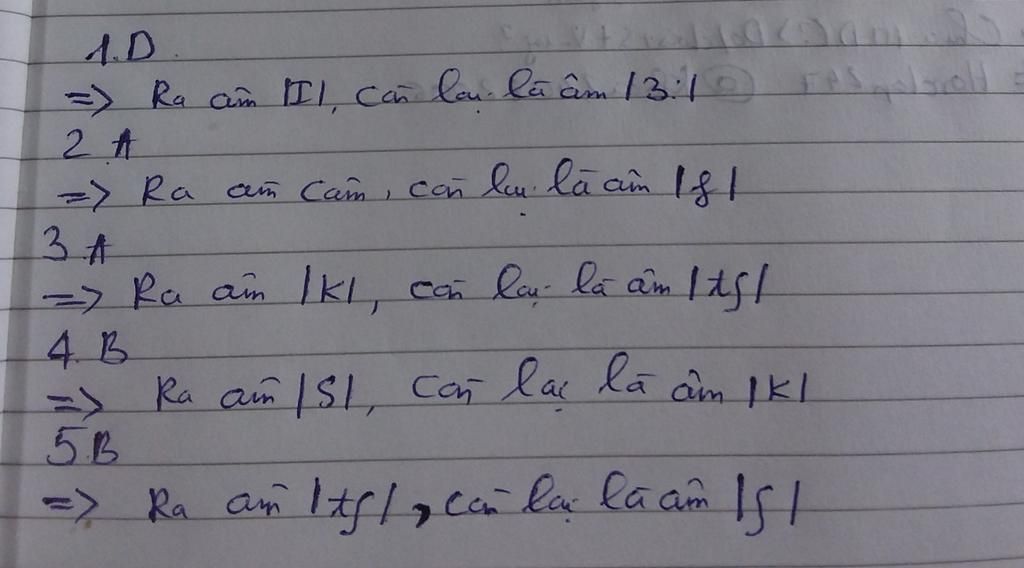 1.D
=> Ra âm |I|, còn lại là âm |3:|
2.A
=> Ra âm câm, còn lại là âm |f|
3.A
=> Ra âm |k|, còn lại là âm |tʃ|
4.B
=> Ra âm |S|, còn lại là âm |k|
5.B
=> Ra âm |tʃ|, còn lại là âm |ʃ|